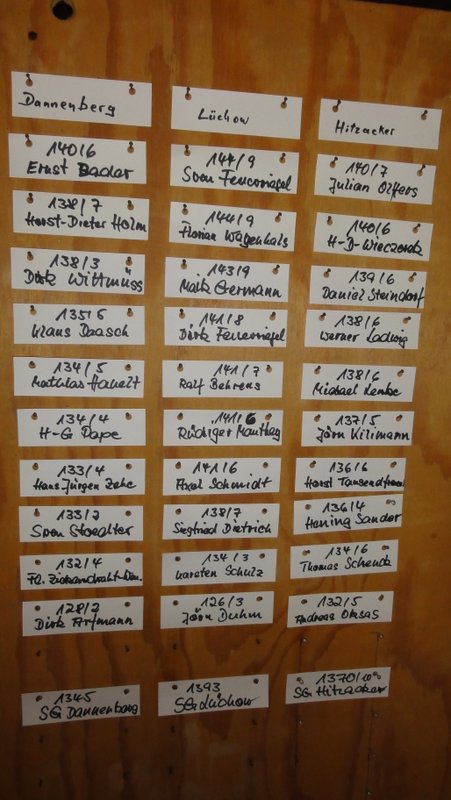 Dannenberg
140/6
Ernst Bader
138/7
Horst-Dieter Holm
138/3
Dirk Wittmüss
135/5
Klaus Daasch
134/5
Mathias
134/4
H-G Pape
133/4
Hans Jürgen
133/2
Sven Stoedter
132/4
128/2
Dirk Artmann
1345
SG Dannenberg
Lüchow
144/9
Sven Feuerriegel
144/9
Florian Wagenhals
143/9
Maik Germann
141/8
Dirk Feuerriegel
141/7
Ralf Behrens
141/6
Rüdiger
141/6
Axel Schmidt
138/7
Siegfried Dietrich
134/3
Karsten Schulz
126/3
Jörn Duhm
1393
SG Lüchow
Hitzacker
140/7
Julian Olfers
140/6
H-D-Wieczorek
139/6
Daniel Steindorf
138/6
Werner Ladwig
138/6
Michael Lembe
137/5
Jörn Kilimann
136/6
Horst Tausendfreund
136/4
Hening Sander
134/6
Thomas Schenck
132/5
Andreas
1370/10
SG Hitzacker